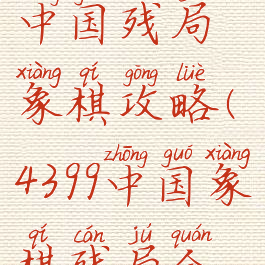 中国残局
xiàng qí gōng lüè
象棋攻略(
zhōng guó xiàng
4399中国象
qí cán jú quán
棋残局全